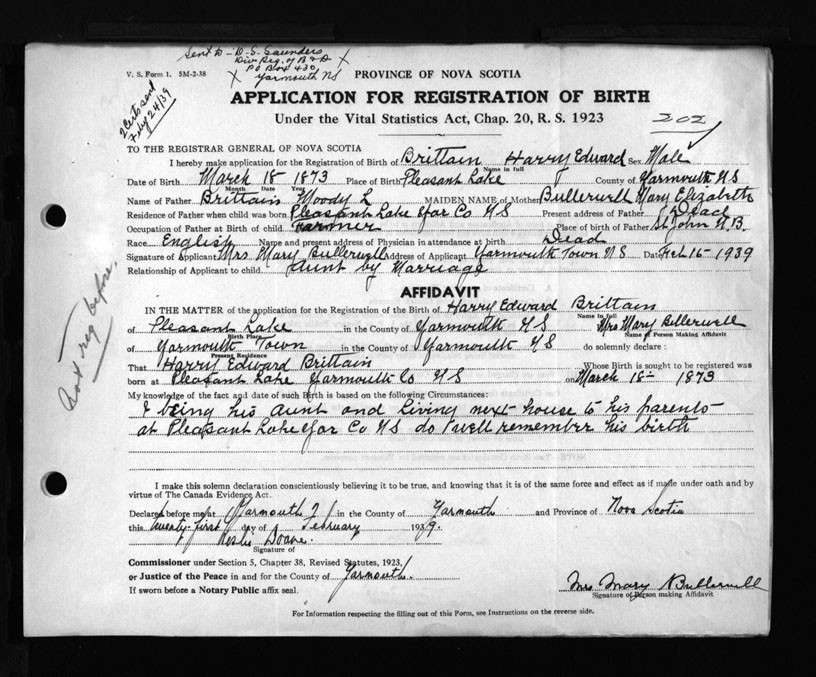 Sent to - D. S. Saunders
Div Reg. of B & D X
X PO Box 430
Yarmouth NS
V. S. Form 1. 5M-2-38 PROVINCE OF NOVA SCOTIA
2 Certs sent
Feby 24/39
APPLICATION FOR REGISTRATION OF BIRTH
Under the Vital Statistics Act, Chap. 20, R. S. 1923 202
TO THE REGISTRAR GENERAL OF NOVA SCOTIA
I hereby make application for the Registration of Birth of Brittain Harry Edward Sex Male
Name in full
Date of Birth March 18 1873 Place of Birth Pleasant Lake County of Yarmouth NS
Month Date Year
Name of Father Brittain Moody L MAIDEN NAME of Mother Bullerwell Mary Elizabeth
Residence of Father when child was born Pleasant Lake Yar Co NS Present address of Father Dead
Occupation of Father at Birth of child Farmer Place of birth of Father St John N.B.
Race English Name and present address of Physician in attendance at birth Dead
Signature of Applicant Mrs Mary Bullerwell Address of Applicant Yarmouth Town NS Date Feb 16-1939
Relationship of Applicant to child Aunt by Marriage
AFFIDAVIT
IN THE MATTER of the application for the Registration of the Birth of Harry Edward Brittain
Name in full
of Pleasant Lake in the County of Yarmouth NS Mrs Mary Bullerwell
Birth Place Name of Person Making Affidavit
of Yarmouth Town of Yarmouth NS do solemnly declare :
Present Residence
That Harry Edward Brittain Whose Birth is sought to be registered was
born at Pleasant Lake Yarmouth Co NS on March 18- 1873
My knowledge of the fact and date of such Birth is based on the following Circumstances:
I being his aunt and living next house to his parents
at Pleasant Lake Yar Co NS do well remember his birth
Not reg before.
I make this solemn declaration conscientiously believing it to be true, and knowing that it is of the same force and effect as if made under oath and by
virtue of The Canada Evidence Act.
Declared before me at Yarmouth in the County of Yarmouth and Province of Nova Scotia
this twenty-first day of February 1939.
Leslie Doane.
Signature of
Commissioner under Section 5, Chapter 38, Revised Statutes, 1923,
or Justice of the Peace in and for the County of Yarmouth.
If sworn before a Notary Public affix seal.
Mrs Mary Bullerwell
Signature of Person making Affidavit
For Information respecting the filling out of this Form, see Instructions on the reverse side.